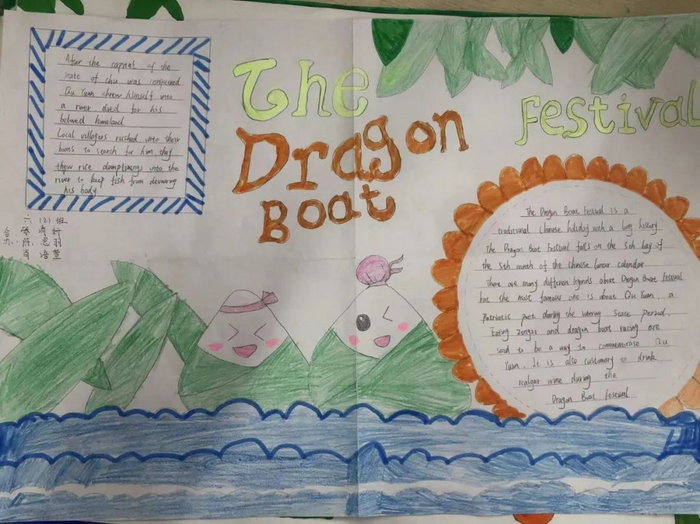 The
Dragon
Boat
Festival
After the capital of the
state of chu was conquered
Qu Yuan threw himself into
a river died for his
beloved homeland
Local villagers rushed into their
boats to search for him they
threw rice dumplings into the
river to keep fish from devouring
his body
六(2)班
The Dragon Boat Festival is a
traditional Chinese holiday with a long history
The Dragon Boat Festival falls on the 5th day of
the 5th month of the Chinese lunar calendar.
There are many different legends about Dragon Boat Festival
but the most famous one is about Qu Yuan, a
Patriotic poet during the Warring States Period.
Eating zongzi and dragon boat racing are
said to be a way to commemorate Qu
Yuan. It is also customary to drink
realgar wine during the
Dragon Boat Festival